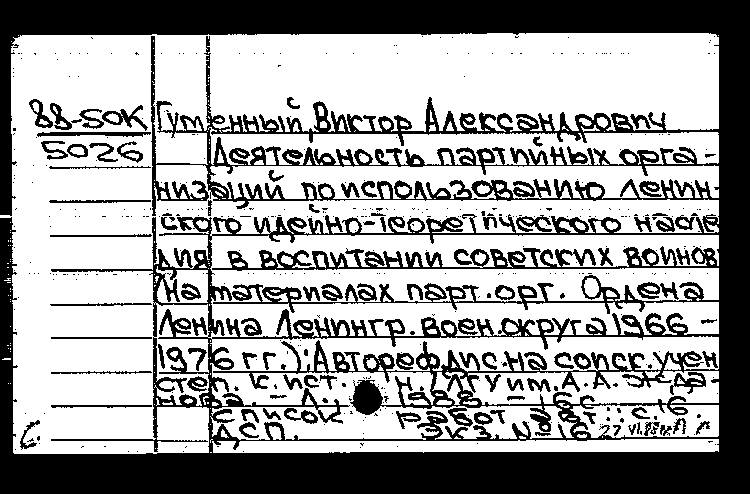 88-50К Гуменный, Виктор Александрович
5026 Деятельность партийных орга-
низаций по использованию ленин-
ского идейно-теоретического насле
дия в воспитании советских воинов
(На материалах парт. орг. Ордена
Ленина Ленингр. воен. округа 1966 -
1976 гг.): Автореф. дис. на соиск. учен
степ. к. ист. н. / ЛГУ им. А. А. Жда-
нова. - Л., 1988. - 16 с
Список работ авт.: с. 16.
ДСП. Экз. № 16